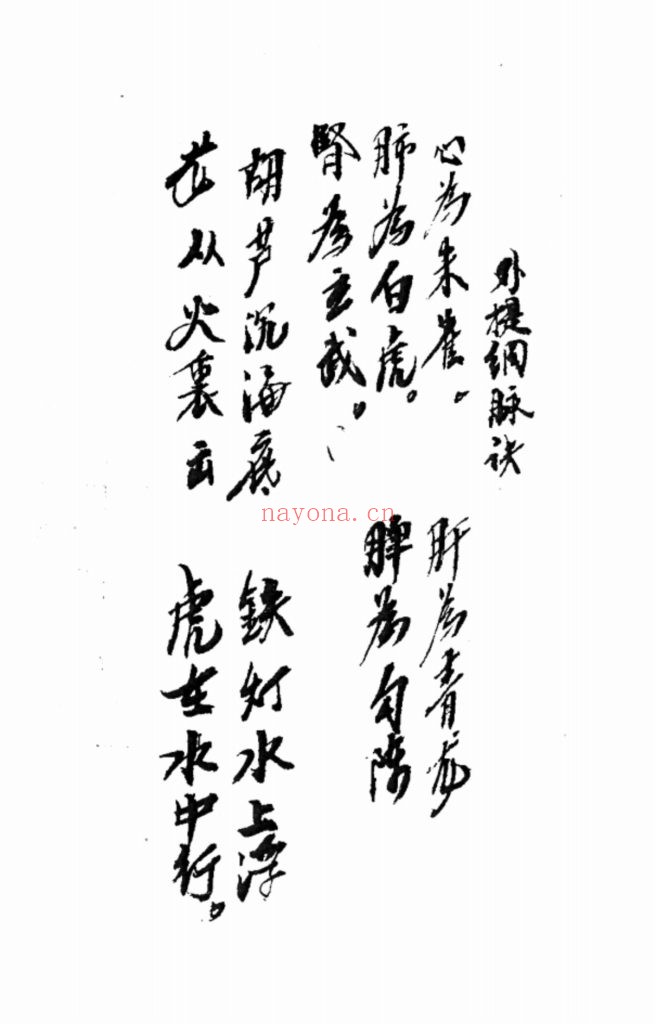 外提纲脉诀
心为朱雀。 肝为青龙
肺为白虎。 脾为勾陈
腎为玄武。
胡芦沉海底 鉄灯水上浮
龙从火裏出 虎在水中行。
nayona.cn